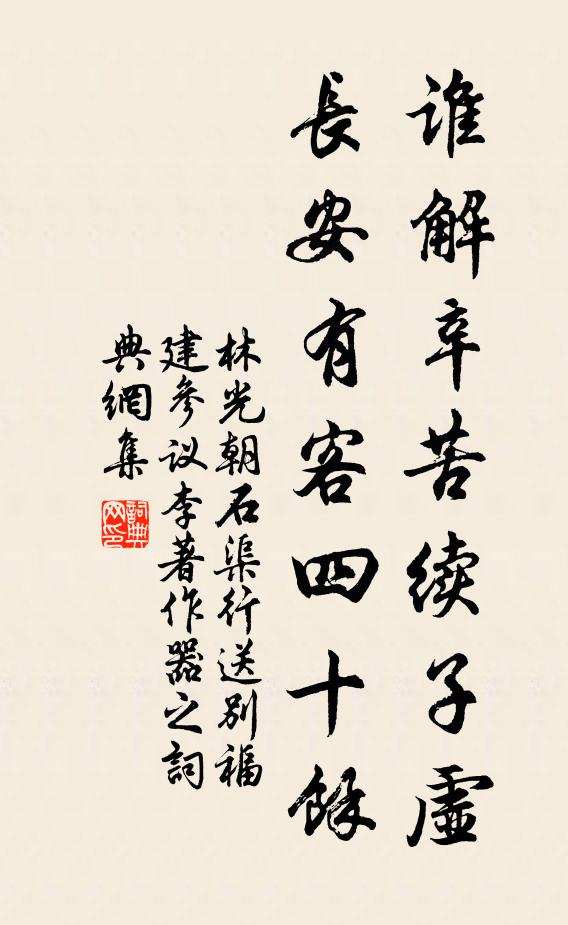 谁解辛苦续子虛
長安有客四十餘
林光朝石渠行送别福
建參议李著作器之詞
典網集
詞典网印